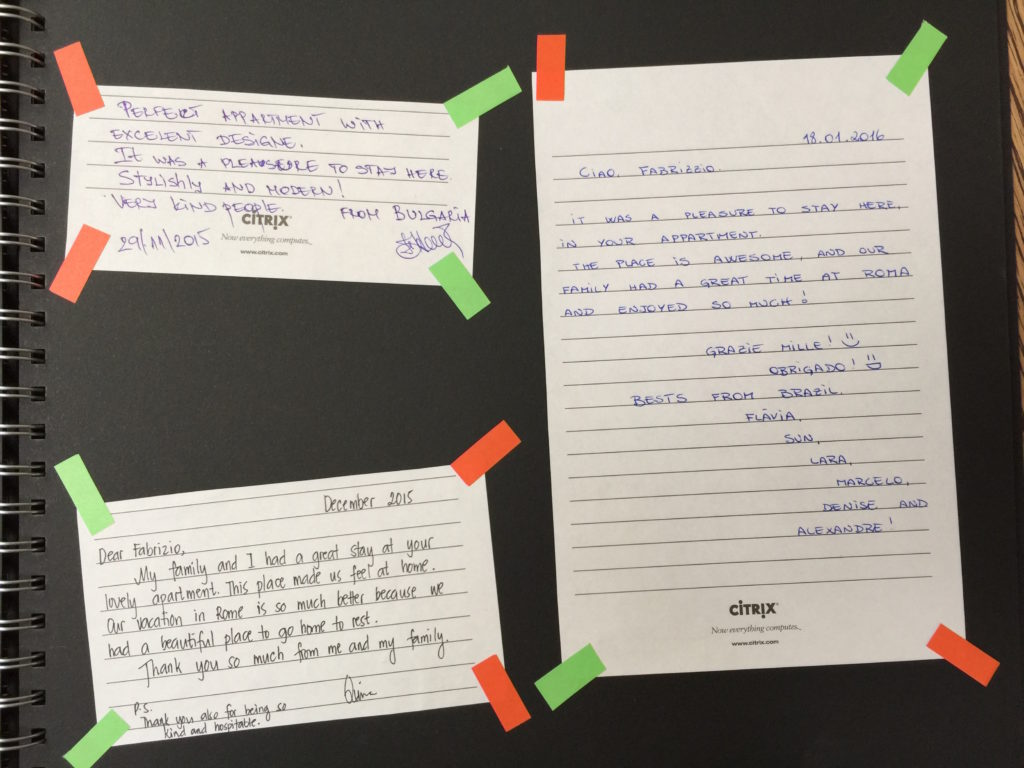 PERFEKT APPARTMENT WITH
EXCELENT DESIGNE.
IT WAS A PLEASURE TO STAY HERE.
STYLISHLY AND MODERN!
VERY KIND PEOPLE. FROM BULGARIA
CITRIX
29/11/2015
Now everything computes.
www.citrix.com
December 2015
Dear Fabrizio,
My family and I had a great stay at your
lovely apartment. This place made us feel at home.
Our vacation in Rome is so much better because we
had a beautiful place to go home to rest.
Thank you so much from me and my family.
P.S.
Thank you also for being so
kind and hospitable.
18.01.2016
CIAO, FABRIZZIO.
IT WAS A PLEASURE TO STAY HERE,
IN YOUR APPARTMENT.
THE PLACE IS AWESOME, AND OUR
FAMILY HAD A GREAT TIME AT ROMA
AND ENJOYED SO MUCH!
GRAZIE MILLE!
OBRIGADO!
BESTS FROM BRAZIL.
FLÁVIA,
SUN,
LARA,
MARCELO,
DENISE AND
ALEXANDRE!
CITRIX
Now everything computes.
www.citrix.com